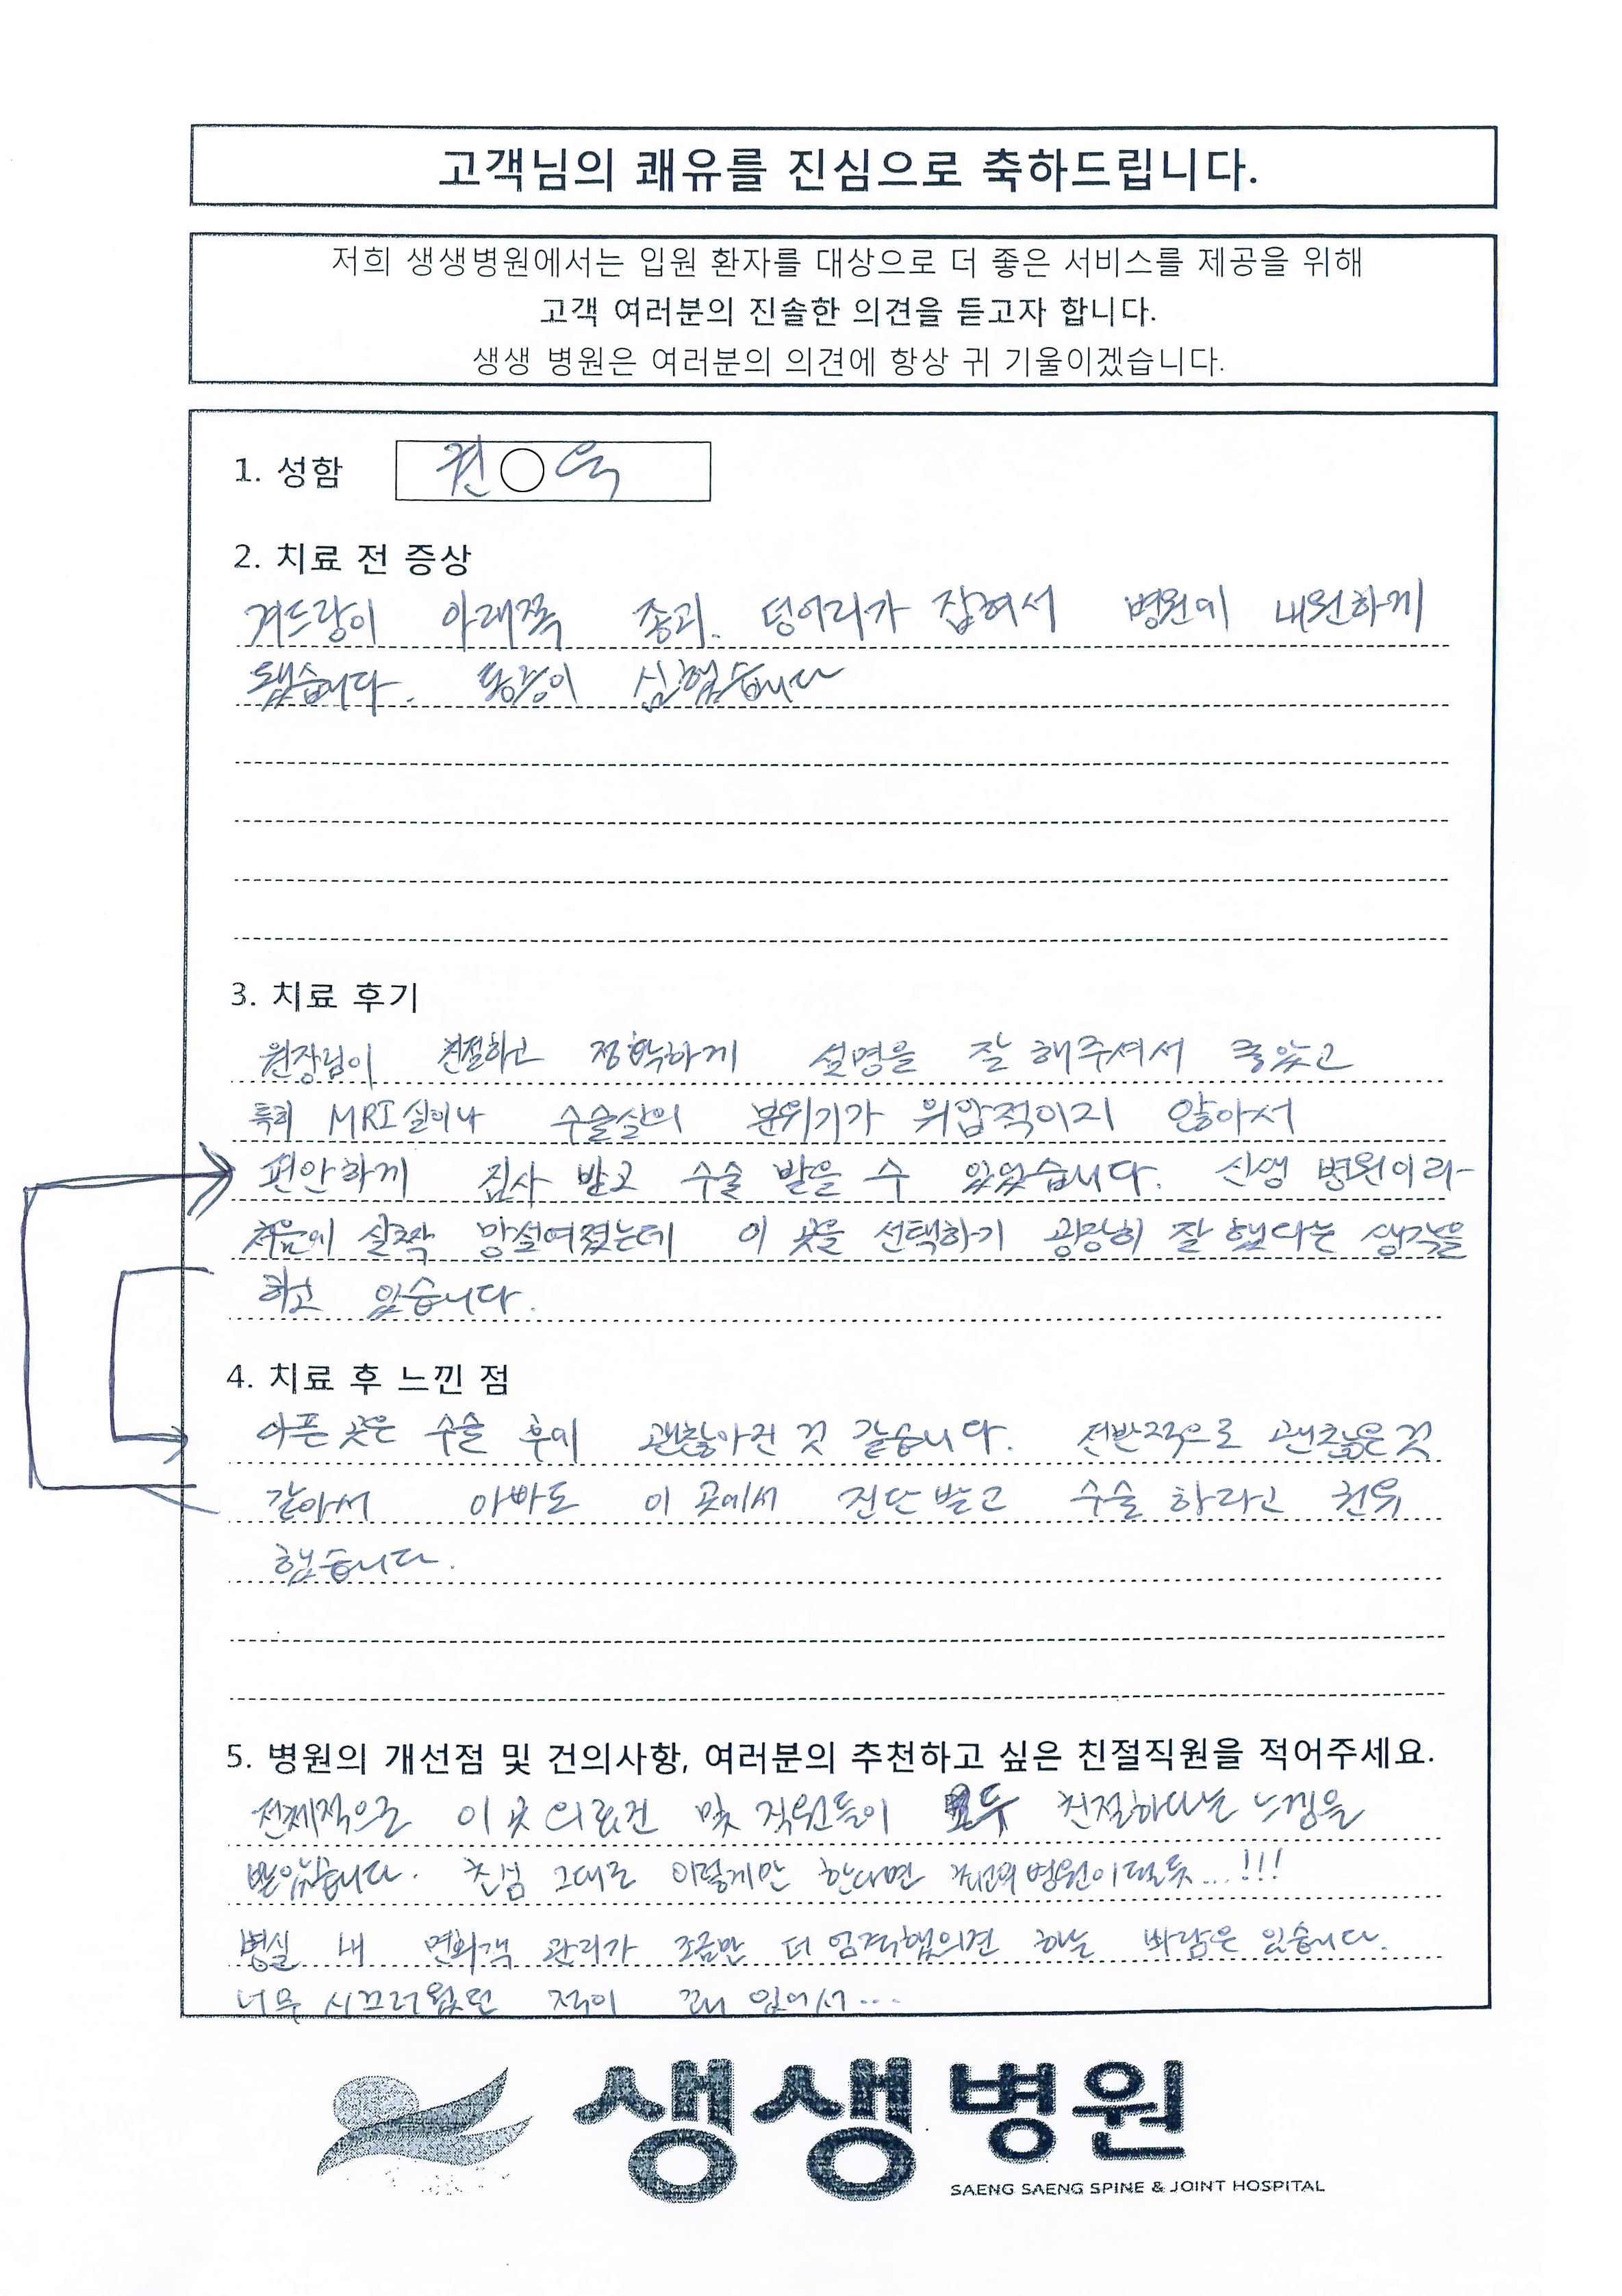 고객님의 쾌유를 진심으로 축하드립니다.
저희 생생병원에서는 입원 환자를 대상으로 더 좋은 서비스를 제공을 위해
고객 여러분의 진솔한 의견을 듣고자 합니다.
생생 병원은 여러분의 의견에 항상 귀 기울이겠습니다.
1. 성함 권○욱
2. 치료 전 증상
겨드랑이 아래쪽 종괴. 덩어리가 잡혀서 병원에 내원하게
됐습니다. 통증이 심했습니다
3. 치료 후기
원장님이 친절하고 정확하게 설명을 잘 해주셔서 좋았고
특히 MRI실이나 수술실의 분위기가 위압적이지 않아서
편안하게 검사 받고 수술 받을 수 있었습니다. 신생 병원이라
처음에 살짝 망설여졌는데 이 곳을 선택하기 굉장히 잘 했다는 생각을
하고 있습니다.
4. 치료 후 느낀 점
아픈 곳은 수술 후에 괜찮아진 것 같습니다. 전반적으로 괜찮은 것
같아서 아빠도 이 곳에서 진단 받고 수술 하라고 권유
했습니다.
5. 병원의 개선점 및 건의사항, 여러분의 추천하고 싶은 친절직원을 적어주세요.
전체적으로 이 곳 의료진 및 직원들이 모두 친절하다는 느낌을
받았습니다. 초심 그대로 이렇게만 한다면 최고의 병원이 될듯...!!!
병실 내 면회객 관리가 조금만 더 엄격했으면 하는 바람은 있습니다.
너무 시끄러웠던 적이 꽤 있어서...
생생병원
SAENG SAENG SPINE & JOINT HOSPITAL